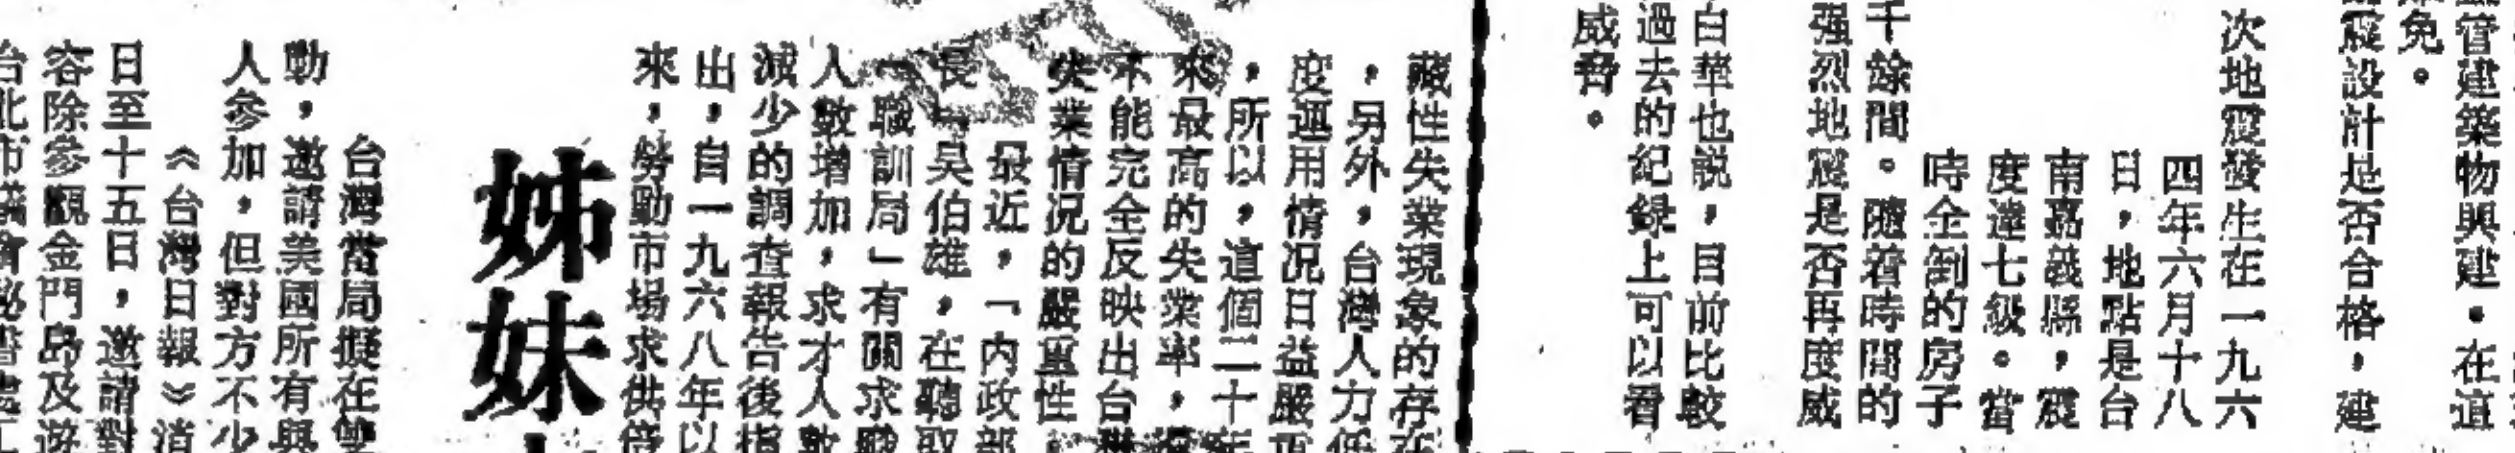 管建築物與建。在這
難免。
震設計是否合格，建
次地震發生在一九六
四年六月十八
日，地點是台
南嘉義縣，震
度達七級。當
時全倒的房子
千餘間。隨着時間的
强烈地震是否再度威
白華也說，目前比較
過去的紀録上可以看
威脅。
藏性失業現象的存在
，另外，台灣人力低
度運用情况日益嚴重
，所以，這個二十年
來最高的失業率，
不能完全反映出台灣
失業情况的嚴重性。
最近，「內政部
長」吳伯雄，在聽取
「職訓局」有關求職
人數增加，求才人數
減少的調查報告後指
出，自一九六八年以
來，勞動市場求供倍
姊妹
台灣當局擬在雙
動，邀請美國所有與
人參加，但對方不少
《台灣日報》消
日至十五日，邀請對
容除參觀金門島及遊
台北市議會秘書處工